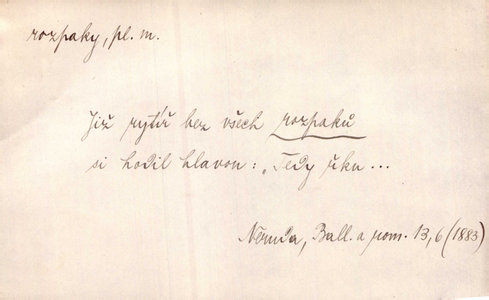 rozpaky, pl. m.
Již rytíř bez všech rozpaků
si hodil hlavou: „Tedy řku ...
Neruda, Ball. a rom. 13, 6 (1883)